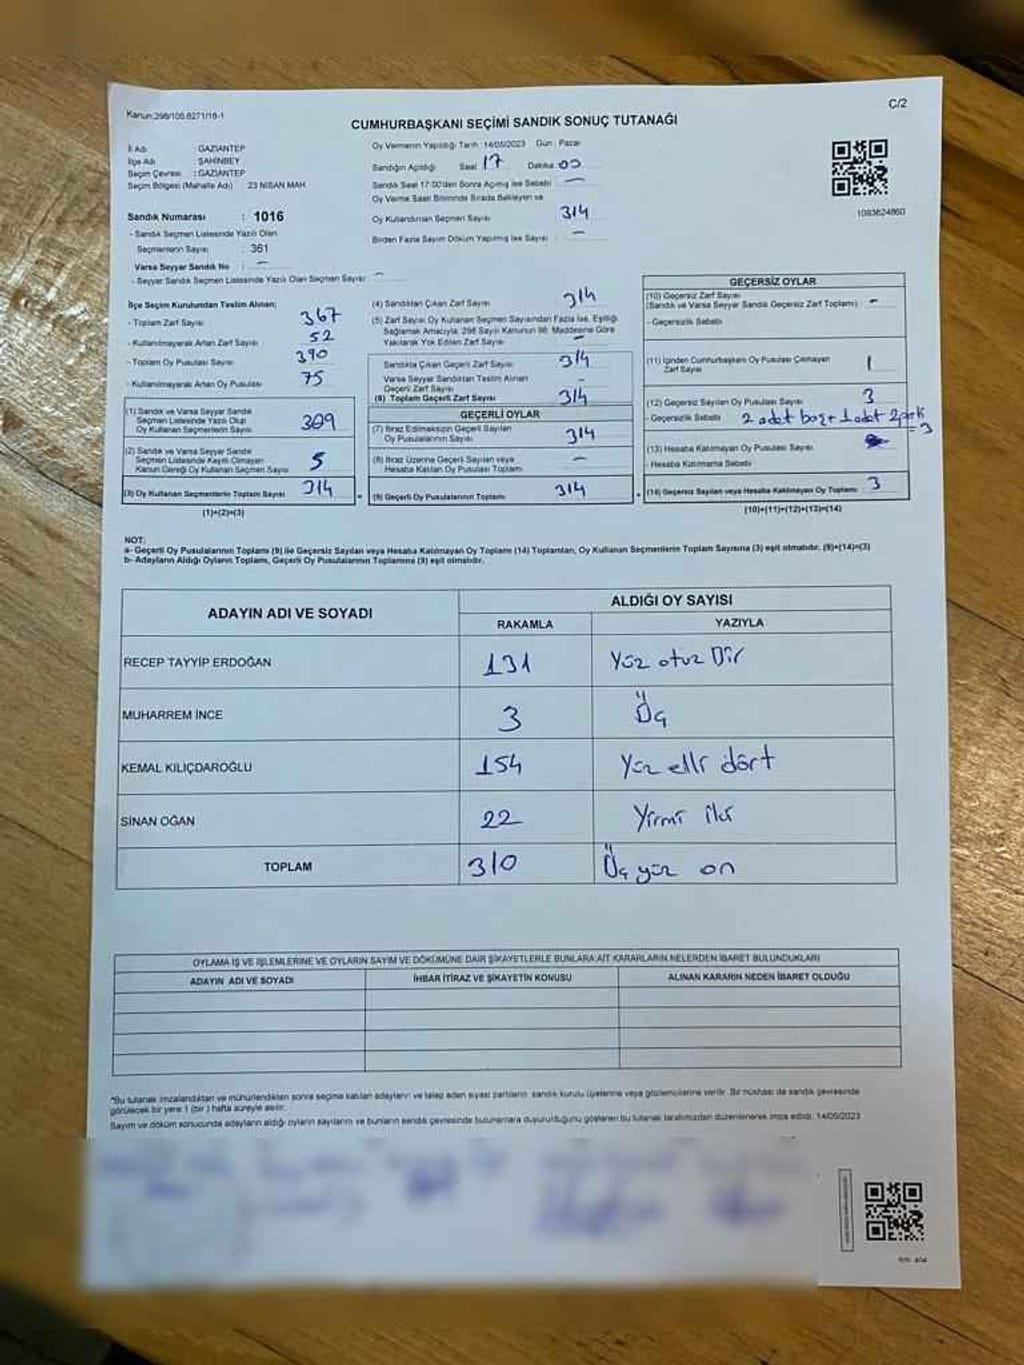 Kanun:298/105.6271/18-1
C/2
CUMHURBAŞKANI SEÇİMİ SANDIK SONUÇ TUTANAĞI
İl Adı : GAZİANTEP
İlçe Adı : ŞAHİNBEY
Seçim Çevresi : GAZİANTEP
Seçim Bölgesi (Mahalle Adı) 23 NİSAN MAH.
Sandık Numarası : 1016
- Sandık Seçmen Listesinde Yazılı Olan
Seçmenlerin Sayısı : 361
Varsa Seyyar Sandık No : -
- Seyyar Sandık Seçmen Listesinde Yazılı Olan Seçmen Sayısı: -
Oy Vermenin Yapıldığı Tarih : 14/05/2023 Gün : Pazar
Sandığın Açıldığı Saat 17 Dakika 00
Sandık Saat 17:00'den Sonra Açılmış İse Sebebi -
Oy Verme Saati Bitiminde Sırada Bekleyen ve
Oy Kullandırılan Seçmen Sayısı 314
Birden Fazla Sayım Döküm Yapılmış İse Sayısı : -
1093624860
İlçe Seçim Kurulundan Teslim Alınan;
- Toplam Zarf Sayısı 367
- Kullanılmayarak Artan Zarf Sayısı 52
- Toplam Oy Pusulası Sayısı 390
- Kullanılmayarak Artan Oy Pusulası 75
(1) Sandık ve Varsa Seyyar Sandık
Seçmen Listesinde Yazılı Olup
Oy Kullanan Seçmenlerin Sayısı 309
(2) Sandık ve Varsa Seyyar Sandık
Seçmen Listesinde Kayıtlı Olmayan
Kanun Gereği Oy Kullanan Seçmen Sayısı 5
(3) Oy Kullanan Seçmenlerin Toplam Sayısı 314
(1)+(2)=(3)
(4) Sandıktan Çıkan Zarf Sayısı 314
(5) Zarf Sayısı Oy Kullanan Seçmen Sayısından Fazla İse, Eşitliği
Sağlamak Amacıyla 298 Sayılı Kanunun 98. Maddesine Göre
Yakılarak Yok Edilen Zarf Sayısı -
Sandıkta Çıkan Geçerli Zarf Sayısı 314
Varsa Seyyar Sandıktan Teslim Alınan
Geçerli Zarf Sayısı -
(6) Toplam Geçerli Zarf Sayısı 314
GEÇERLİ OYLAR
(7) İtiraz Edilmeksizin Geçerli Sayılan
Oy Pusulalarının Sayısı 314
(8) İtiraz Üzerine Geçerli Sayılan veya
Hesaba Katılan Oy Pusulası Toplamı -
(9) Geçerli Oy Pusulalarının Toplamı 314
GEÇERSİZ OYLAR
(10) Geçersiz Zarf Sayısı
(Sandık ve Varsa Seyyar Sandık Geçersiz Zarf Toplamı) -
- Geçersizlik Sebebi
(11) İçinden Cumhurbaşkanı Oy Pusulası Çıkmayan
Zarf Sayısı 1
(12) Geçersiz Sayılan Oy Pusulası Sayısı 3
- Geçersizlik Sebebi 2 adet boş + 1 adet = 3
(13) Hesaba Katılmayan Oy Pusulası Sayısı
- Hesaba Katılmama Sebebi
(14) Geçersiz Sayılan veya Hesaba Katılmayan Oy Toplamı 3
(10)+(11)+(12)+(13)=(14)
NOT:
a- Geçerli Oy Pusulalarının Toplamı (9) ile Geçersiz Sayılan veya Hesaba Katılmayan Oy Toplamı (14) Toplamları, Oy Kullanan Seçmenlerin Toplam Sayısına (3) eşit olmalıdır. (9)+(14)=(3)
b- Adayların Aldığı Oyların Toplamı, Geçerli Oy Pusulalarının Toplamına (9) eşit olmalıdır.
ADAYIN ADI VE SOYADI
ALDIĞI OY SAYISI
RAKAMLA YAZIYLA
RECEP TAYYİP ERDOĞAN 131 Yüz otuz Bir
MUHARREM İNCE 3 Üç
KEMAL KILIÇDAROĞLU 154 Yüz elli dört
SİNAN OĞAN 22 Yirmi iki
TOPLAM 310 Üç yüz on
OYLAMA İŞ VE İŞLEMLERİNE VE OYLARIN SAYIM VE DÖKÜMÜNE DAİR ŞİKAYETLERLE BUNLARA AİT KARARLARIN NELERDEN İBARET BULUNDUKLARI
ADAYIN ADI VE SOYADI İHBAR İTİRAZ VE ŞİKAYETİN KONUSU ALINAN KARARIN NEDEN İBARET OLDUĞU
*Bu tutanak imzalandıktan ve mühürlendikten sonra seçime katılan adayların ve talep eden siyasi partilerin sandık kurulu üyelerine veya gözlemcilerine verilir. Bir nüshası da sandık çevresinde
görülecek bir yere 1 (bir) hafta süreyle asılır.
Sayım ve döküm sonucunda adayların aldığı oyların sayılarını ve bunların sandık çevresinde bulunanlara duyurulduğunu gösteren bu tutanak tarafımızdan düzenlenerek imza edildi. 14/05/2023